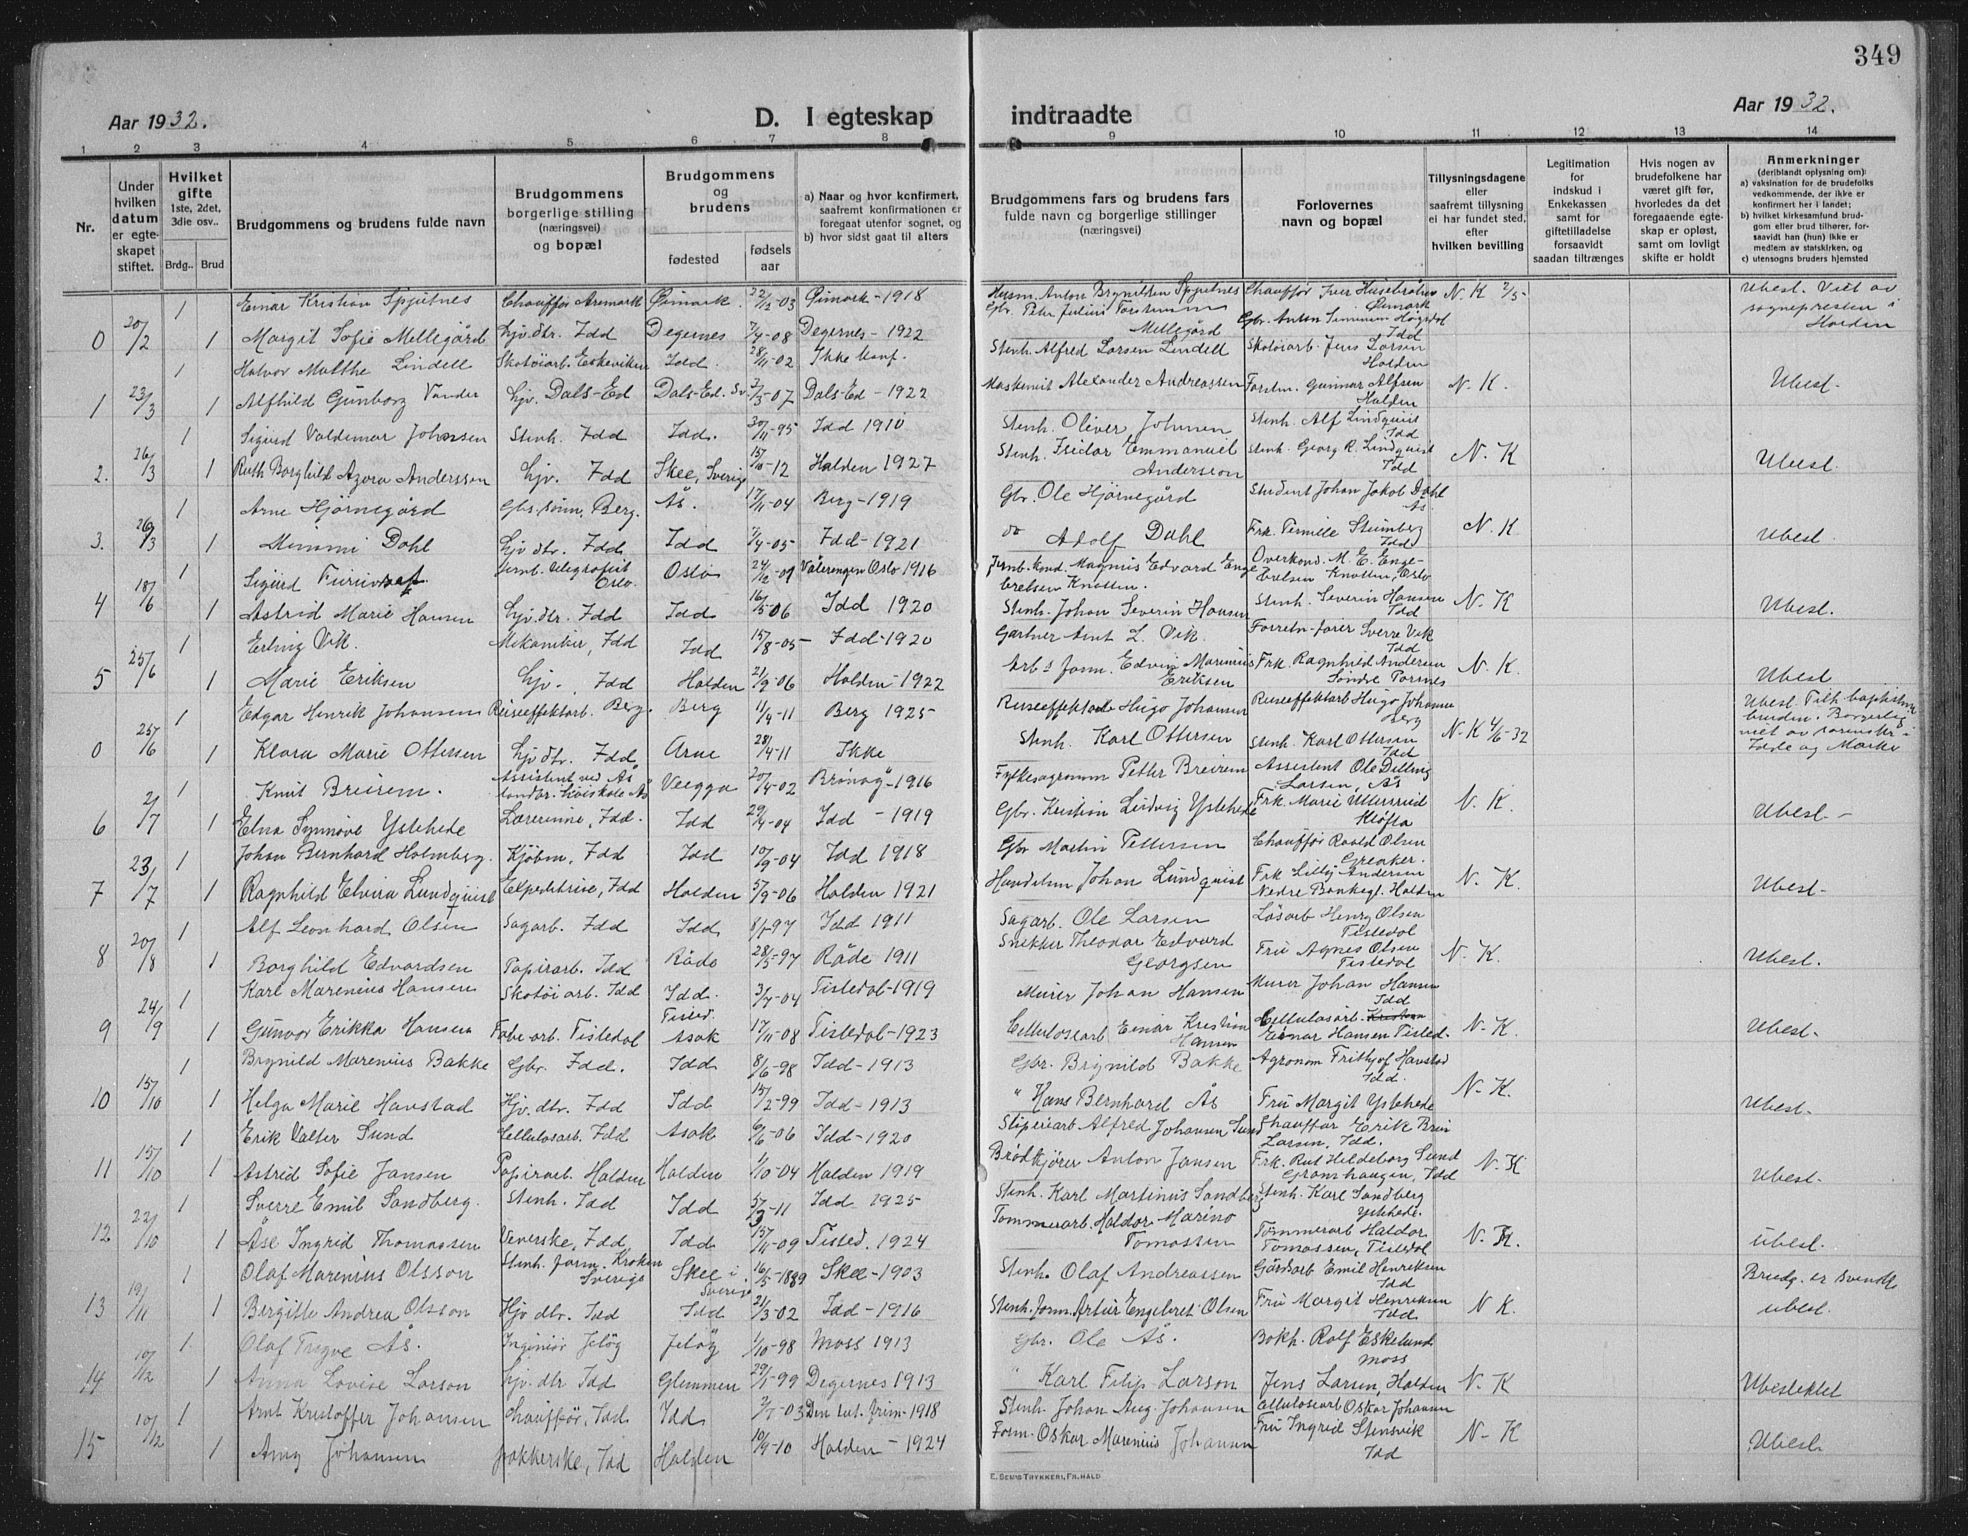 349
Aar 1932.
D. I egteskap indtraadte
Aar 1932.
1 2 3 4 5 6 7 8 9 10 11 12 13 14
Nr.
Under hvilken datum er egteskapet stiftet.
Hvilket gifte 1ste, 2det, 3die osv..
Brdg.. Brud
Brudgommens og brudens fulde navn
Brudgommens borgerlige stilling (næringsvei) og bopæl
Brudgommens og brudens
fødested
fødselsaar
a) Naar og hvor konfirmert, saafremt konfirmationen er foregaat utenfor sognet, og
b) hvor sidst gaat til alters
Brudgommens fars og brudens fars fulde navn og borgerlige stillinger (næringsvei)
Forlovernes navn og bopæl
Tillysningsdagene eller saafremt tillysning ei har fundet sted, efter hvilken bevilling
Legitimation for indskud i Enkekassen samt for giftetilladelse forsaavidt saadan tiltrænges
Hvis nogen av brudefolkene har været gift før, hvorledes da det foregaaende egteskap er opløst, samt om lovligt skifte er holdt
Anmerkninger (deriblandt oplysning om):
a) vaksination for de brudefolks vedkommende, der ikke er konfirmert her i landet;
b) hvilket kirkesamfund brudgom eller brud tilhører, forsaavidt han (hun) ikke er medlem av statskirken, og
c) utensogns bruders hjemsted
1 Einar Kristian Spjutnes Chauffør Aremark Øimark 22/12-03 Øimark-1918 Husm. Anton Brynildsen Spjutnes Chauffør Øimark N. K 2/5- Ubest. Viet av sognepresten i Halden
0 20/2 1 Margit Sofie Mellegård Hjv. dtr. Idd Degernes 7/4-08 Degernes-1922 Gbr. Peter Julius Torstensen Mellegård Gbr. Anton Idd
1 Halvor Malthe Lindell Skotøiarb. Eskeviken Idd. 28/11-02 Ikke konf. Stenh. Alfred Larsen Lindell Skotøiarb. Jens Larsen Halden
1 23/3 1 Alfhild Gunborg Vander Hjv. Dals-Ed Dals-Ed. Sv. 2/3-07 Dals-Ed-1922 Maskinist Alexander Andreassen Forstm. Gunnar Alfsen Halden N. K. Ubest.
1 Sigurd Valdemar Johnsen Stenh. Idd Idd. 20/11-95 Idd 1910 Stenh. Oliver Johnsen Stenh. Alf Lindquist Idd
2. 26/3 1 Ruth Borghild Azora Andersson Hjv. Idd Skee, Sverige 15/10-12 Halden 1927 Stenh. Isidor Emmanuel Andersson Stenh. Georg R. Lindquist Idd N. K Ubest.
1 Arne Hjørnegård Gbs. sønn, Berg. Ås. 17/11-04 Berg-1919 Gbr. Ole Hjørnegård Student Johan Jakob Dahl Ås
3. 26/3 1 Mimmi Dahl Hjv. dtr. Idd. Idd 7/4-05 Idd-1921 do Adolf Dahl Frk. Pernille Stumberg Idd N. K Ubest.
1 Sigurd Jernb. telegrafist Oslo. Oslo 24/12-01 Vålerengen Oslo 1916 Jernb. kond. Magnus Edvard Engebretsen Knatten. Overkond. M. E. Engebretsen Knatten, Oslo
4 18/6 1 Astrid Marie Hansen Hjv. dtr. Idd Idd 16/5-06 Idd 1920 Stenh. Johan Severin Hansen Stenh. Severin Hansen Idd N. K Ubest.
1 Erling Vik. Mekaniker, Idd Idd 15/8-05 Idd-1920 Gartner Arnt L. Vik. Forretn-fører Sverre Vik Idd
5 25/6 1 Marie Eriksen Hjv-, Idd Halden 21/9-06 Halden-1922 Arb.s form. Edvin Marinius Eriksen Frk. Ragnhild Andersen Søndre Tornes N. K. Ubest
1 Edgar Henrik Johansen Reiseeffektarb. Berg. Berg 11/9-11 Berg 1925 Reiseeffektarb Hugo Johansen Reiseeffektarb Hugo Johansen Berg
0 25/6 1 Klara Marie Ottersen Hjv dtr. Idd. Arne 28/4-11 Ikke Stenh. Karl Ottersen Stenh. Karl Ottersen Idd N-K 4/6-32 Ubest. bruden. Borgerlig viet av sorenskr. i Idde og Marke
1 Knut Breirem. Assistent ved Ås landbr. høiskole Ås Veggja 20/4-02 Brønøy-1916 Fylkesagronom Petter Breirem Assistent Ole Dilling Larsen, Ås
6 2/7 1 Elna Synnøve Ystehede Lærerinne, Idd. Idd 29/4-04 Idd-1919 Gbr. Kristian Ludvig Ystehede Frk. Marie Ullersrud Kløfta N. K. Ubest-
1 Johan Bernhard Holmberg. Kjøbm, Idd Idd 10/9-04 Idd 1918 Gbr Martin Pettersen Chauffør Roald Olsen Greaker.
7 23/7 1 Ragnhild Elvira Lundquist Expeditrise, Idd Halden 5/9-06 Halden 1921 Handelsm Johan Lundquist Frk. Lilly Andersen Nedre Bankegt. Halden N. K. Ubest-
1 Alf Leonhard Olsen Sagarb. Idd Idd 8/1-97 Idd 1911 Sagarb. Ole Larsen Løsarb Henry Olsen Tistedal
8 20/8 1 Borghild Edvardsen Papirarb. Idd Råde 28/5-97 Råde 1911 Snekker Theodor Edvard Georgsen Fru Agnes Olsen Tistedal N. K. Ubest.
1 Karl Marenius Hansen Skotøiarb. Idd Idd. Tisted. 3/4-04 Tistedal-1919 Murer Johan Hansen Murer Johan Hansen Idd
9 24/9 1 Gunvor Erikka Hansen Fabr-arb. Tistedal Asak 17/11-08 Tistedal-1923 Cellulosearb Einar Kristian Hansen Cellulosarb. Kristian Einar Hansen Tisted. N-K. Ubest-
1 Brynild Marenius Bakke Gbr. Idd. Idd 8/6-98 Idd-1913 Gbr. Brynild Bakke Agronom Fritjof Havstad Idd.
10 15/10 1 Helga Marie Havstad Hjv. dtr. Idd Idd 15/2-99 Idd-1913 " Hans Bernhard Ås Fru Margit Ystehede N-K. Ubest-
1 Erik Valter Sund Cellulosarb. Idd Asak 6/6-06 Idd-1920 Sliperiarb Alfred Johansen Sund Chauffør Erik Larsen, Idd.
11 15/10 1 Astrid Sofie Jansen Papirarb. Halden Halden 1/10-04 Halden 1919 Brødkjører Anton Jansen Frk. Rut Hildeborg Sund Grønnhaugen, Idd N-K Ubest.
1 Sverre Emil Sandberg. Stenh. Idd Idd 5/3-11 Idd 1925 Stenh. Karl Martinus Sandberg Stenh. Karl Sandberg Ystehede.
12 22/10 1 Åse Ingrid Thomassen Veverske, Idd Idd 15/11-09 Tisted. 1924 Tømmerarb. Haldor Marino Tomassen Tømmerarb Haldor Tomassen, Tistedal N. K. Ubest.
1 Olaf Marenius Olsson Stenh. form. Kroken Sverige Skee i Sverige 16/5-1889 Skee-1903 Stenh. Olaf Andreassen Gårdsarb Emil Henriksen Idd Brudg. er svensk
13 19/11 1 Birgitte Andrea Olsson Hjv dtr. Idd Idd 21/3-02 Idd-1916 Stenh. form. Artur Engebret Olsen Fru Margit Henriksen Idd N K. ubest.
1 Olaf Trygve Ås. Ingeniør Jeløy Jeløy 1/10-98 Moss 1913 Gbr. Ole Ås. Bokh. Rolf Eskelund Moss
14 10/12 1 Anna Lovise Larson Hjv. dtr Idd Glemmen 29/1-99 Degernes 1913 " Karl Filip Larson Jens Larsen, Halden N-K Ubeslektet
1 Arnt Kristoffer Johansen Chauffør, Idd. Idd 2/7-03 Den lut. frim-1918 Stenh. Johan Aug. Johansen Cellulosarb Oskar Johansen
15 10/12 1 Amy Johansen Pakkerske, Idd Halden 19/9-10 Halden-1924 Form. Oskar Marenius Johansen Fru Ingrid Stensvik Idd N-K Ubest.
E. SEM'S TRYKKERI, FR.HALD